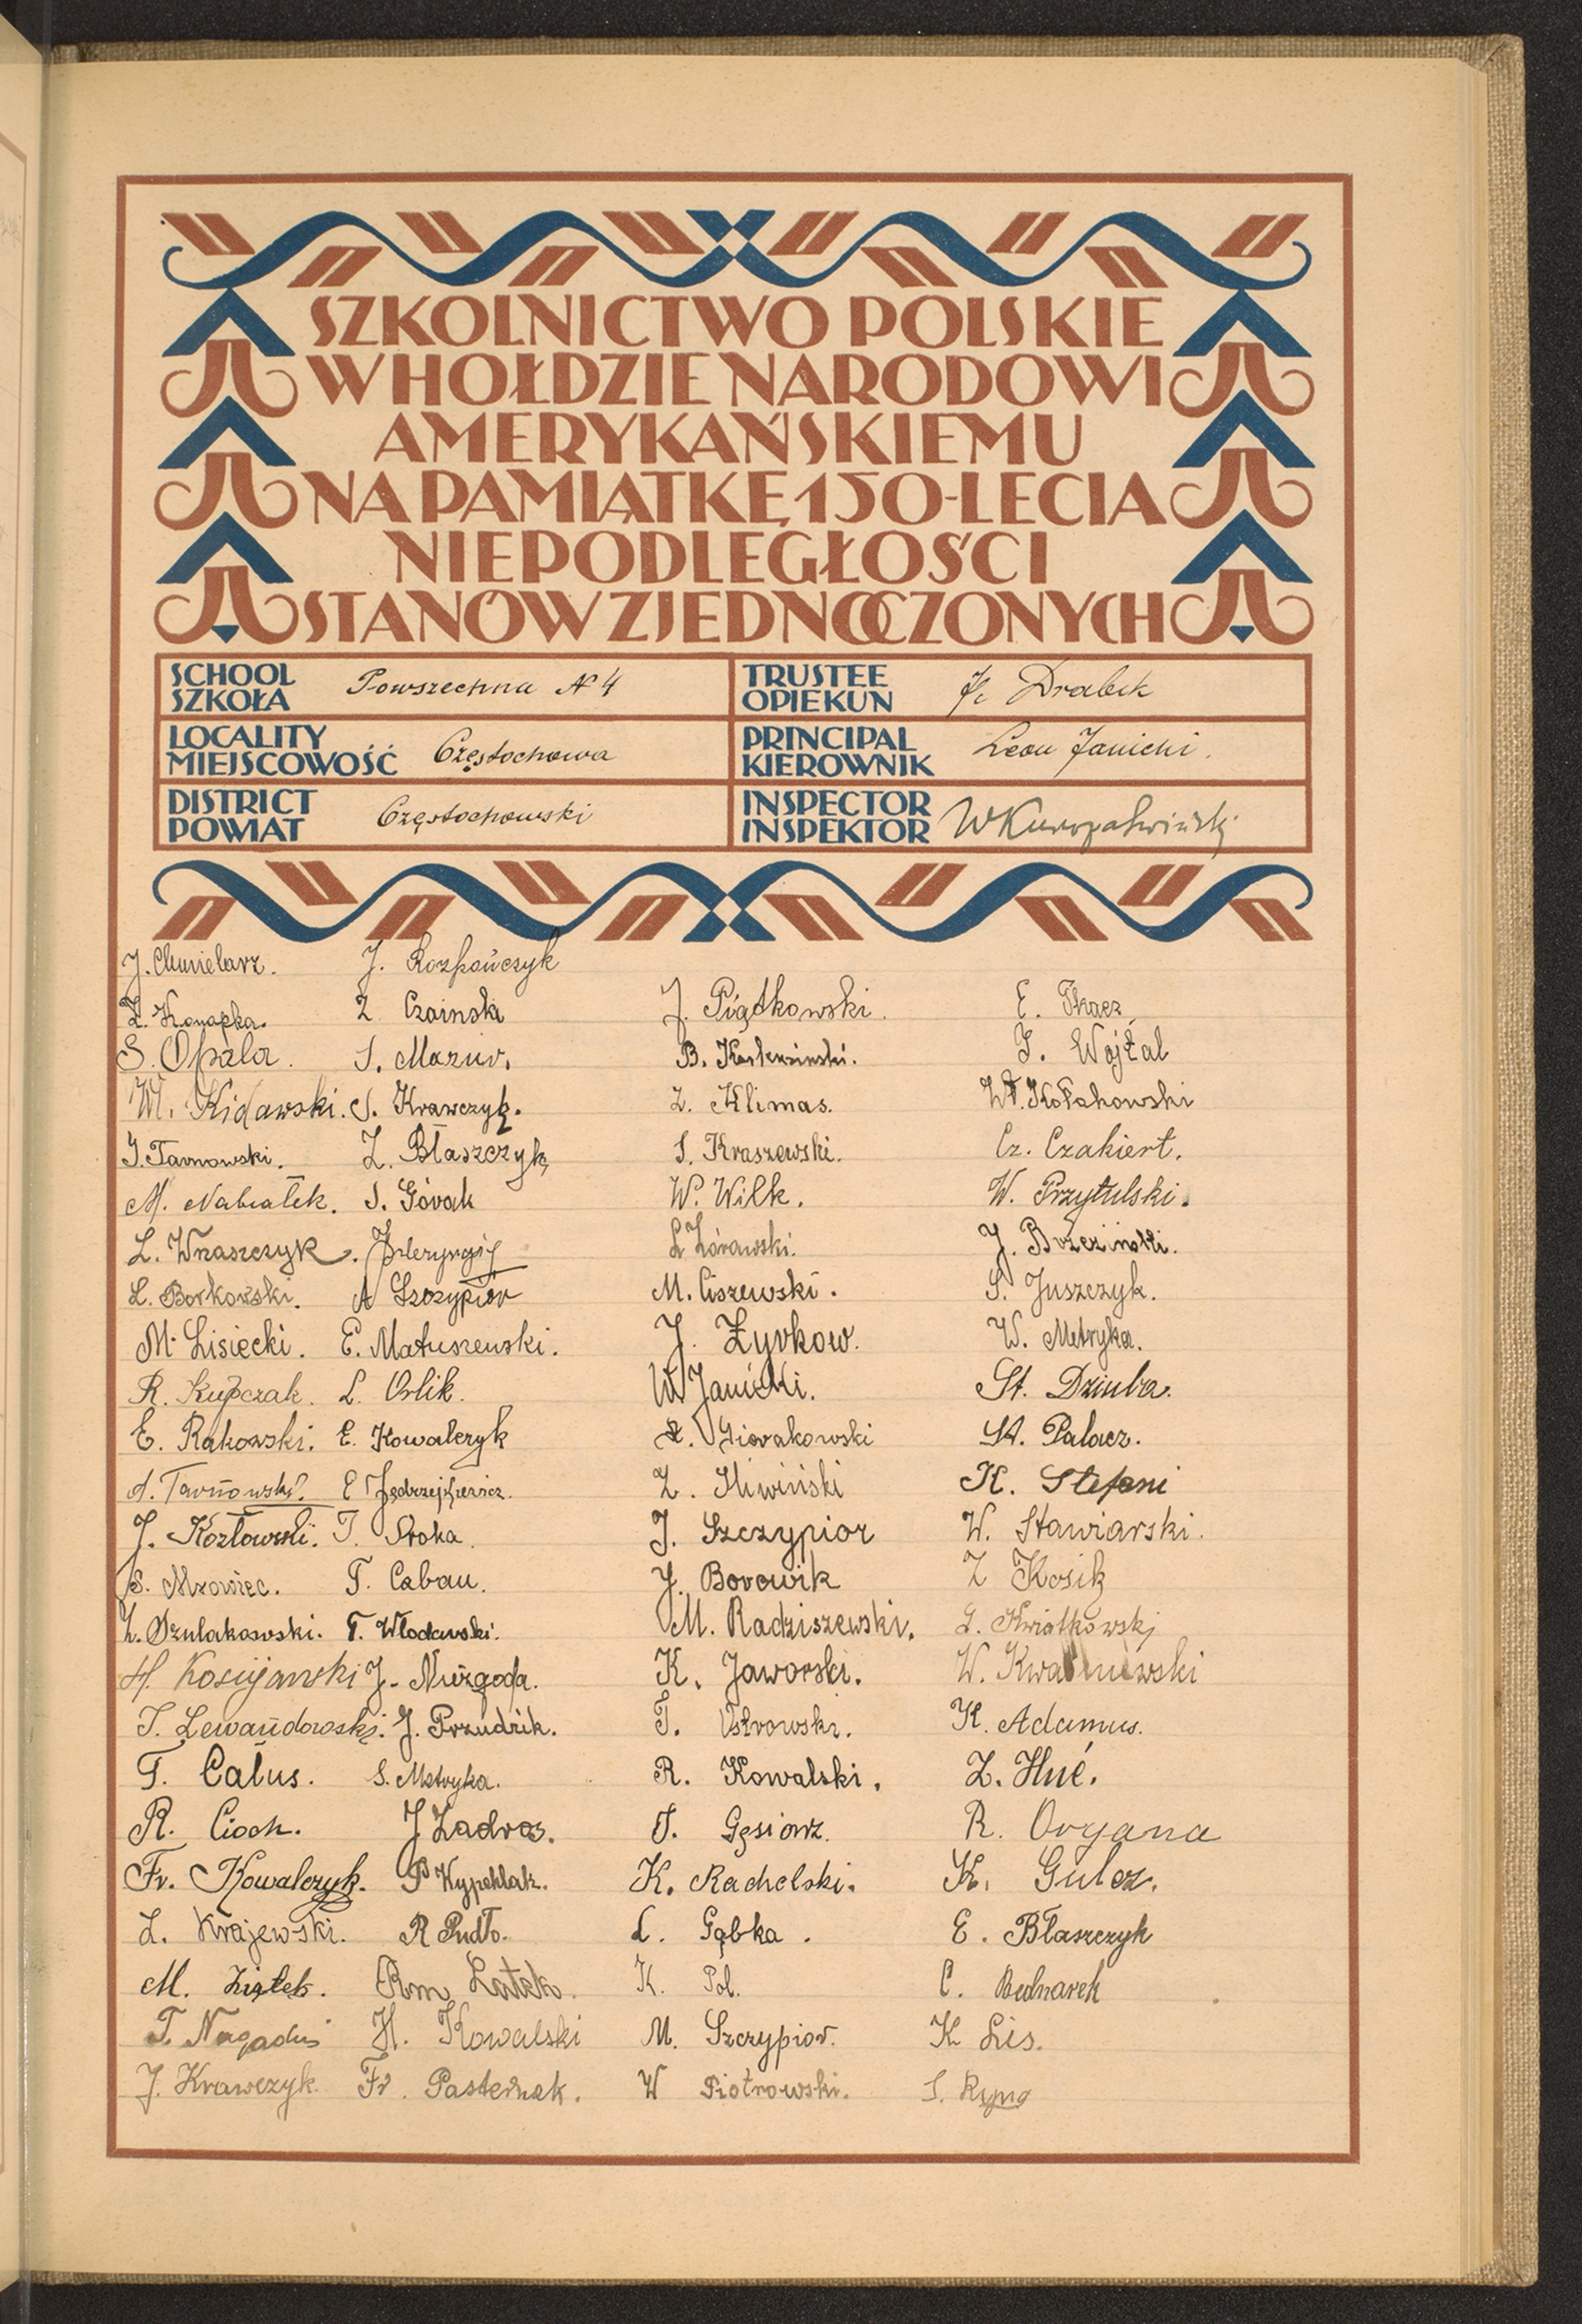 SZKOLNICTWO POLSKIE
W HOŁDZIE NARODOWI
AMERYKAŃSKIEMU
NA PAMIĄTKĘ 150-LECIA
NIEPODLEGŁOŚCI
STANÓW ZJEDNOCZONYCH
SCHOOL
SZKOŁA Powszechna № 4
TRUSTEE
OPIEKUN Drabik
LOCALITY
MIEJSCOWOŚĆ Częstochowa
PRINCIPAL
KIEROWNIK Leon Janicki.
DISTRICT
POWIAT Częstochowski
INSPECTOR
INSPEKTOR
J. Chmielarz.
Z. Konapka.
S. Opala.
M. Kidawski.
J. Tarnowski.
M. Nabiałek.
L. Wnaszczyk.
L. Borkowski.
M. Lisiecki.
R. Kupczak.
E. Rakowski.
A. Tarnowski.
J. Kozłowski.
S. Mrowiec.
T. Lewandowski.
T. Całus.
R. Cioch.
Fr. Kowalczyk.
L. Krajewski.
M. Ziętek.
J. Krawczyk.
J. Rozpończyk
Z Czainski
S. Mazur.
S. Krawczyk.
Z. Błaszczyk
S. Górak
A Szczypiór
E. Matuszewski.
L. Orlik.
E. Kowalczyk
E Jędrzejkiewicz.
T. Sroka.
T. Caban.
T. Włodawski.
J. Niezgoda.
J. Prządzik.
S. Metryka.
J Zadros.
R Pudło.
H. Kowalski
Fr. Pasternak.
J. Piątkowski.
Z. Klimas.
S. Kraszewski.
W. Wilk.
L Żórawski.
M. Ciszewski.
J. Żyrkow.
W Janicki.
Z. Śliwiński
J. Szczypior
J. Borowik
M. Radziszewski.
K. Jaworski.
T. Ostrowski.
R. Kowalski.
J. Gęsiarz.
K. Rachelski.
L. Gąbka.
K. Pol.
M. Szczypior.
W Piotrowski.
E. Tkacz
J. Wojtal
Wł. Kołakowski
Cz. Czakiert.
W. Przytulski.
J. Brzeziński.
S. Juszczyk.
W. Metryka.
St. Dziuba.
St. Palacz.
K. Stefani
W. Stawiarski.
Z Kosik
L. Kwiatkowski
W. Kwaśniewski
K. Adamus.
Z. Huć.
R. Organa
K. Gulcz.
E. Błaszczyk
C. Bednarek
K Lis.